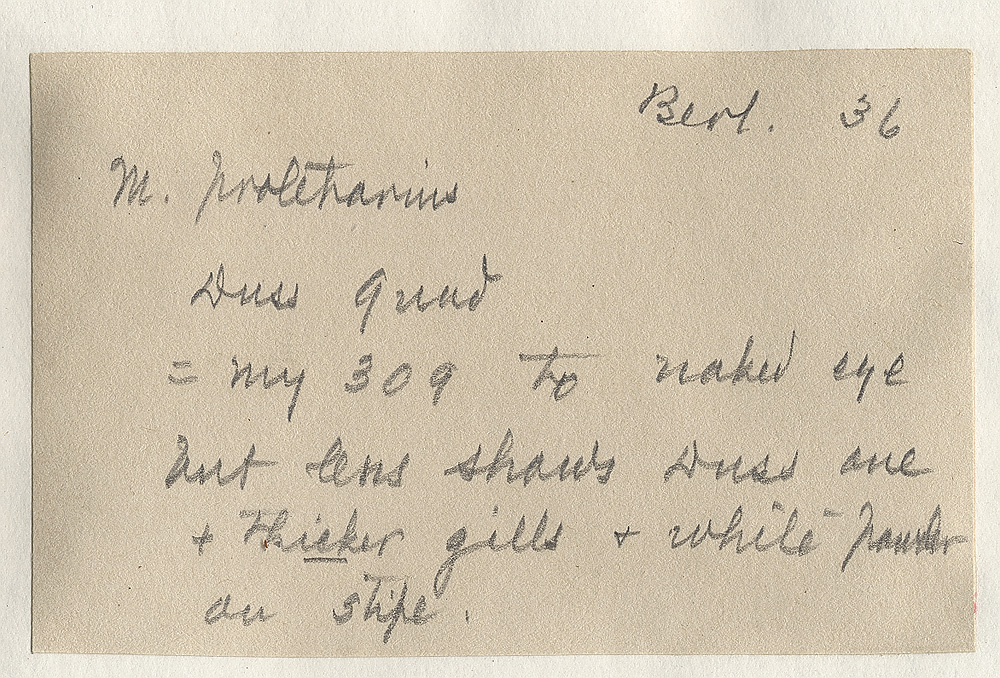 Berl. 36
M. proletharius
Duss Guad
= my 309 to naked eye
but lens shows Duss one
+ thicker gills + white powder
on stipe.